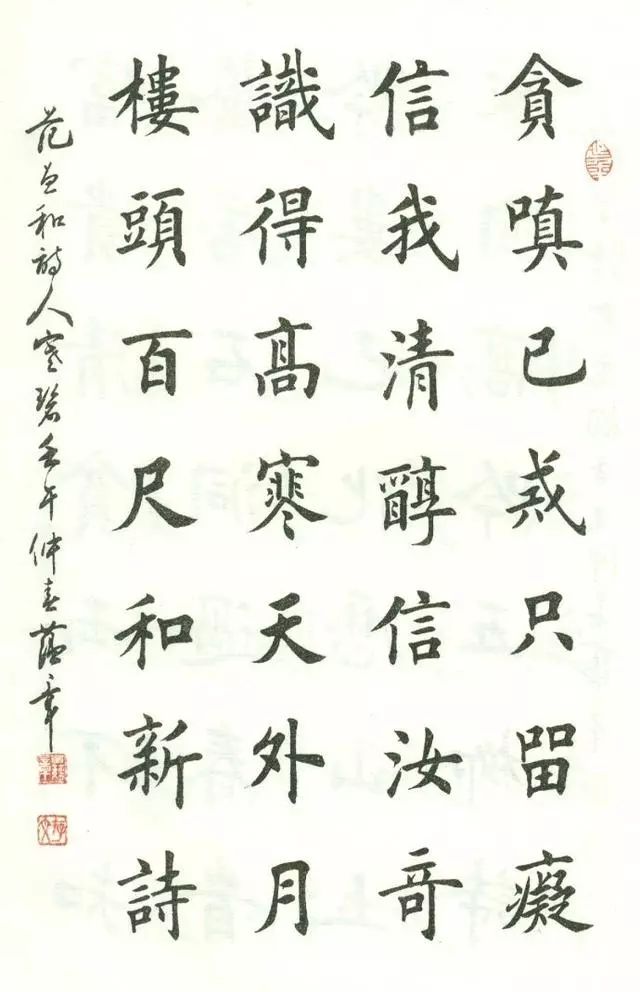 貪嗔已戒只留癡
信我清醇信汝奇
識得高寒天外月
樓頭百尺和新詩
范老和詩人寒碧壬午仲春蔭章